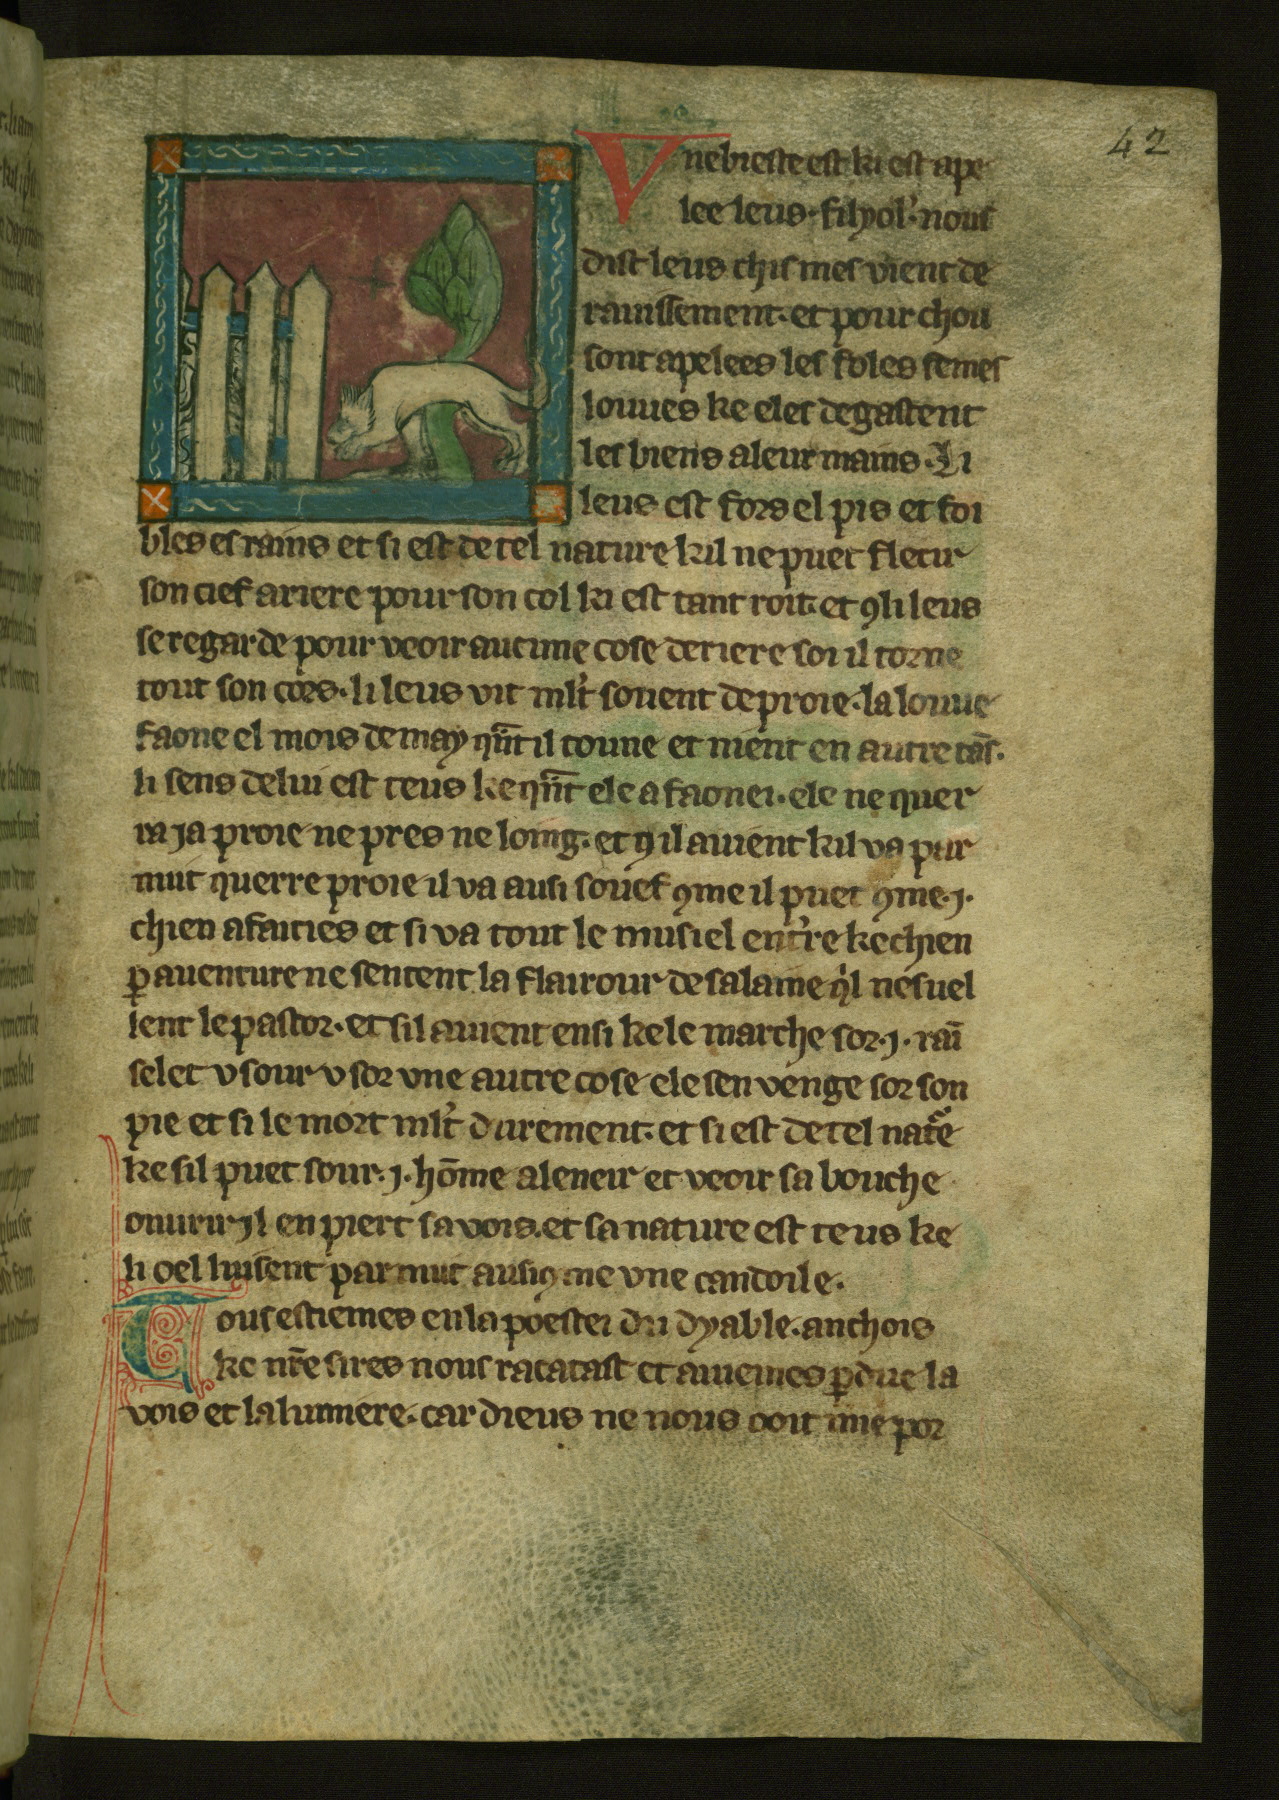 42
Vne bieste est ki est ape
lee leus. fisyol'. nous
dist leus chis mes vient de
rauissement. et pour chou
sont apelees les foles femes
louues ke eles degastent
les biens a leur mains. Li
leus est fors el pis et foi
bles es rains et si est de tel nature kil ne puet flecir
son cief ariere pour son col ki est tant roit. et qͥ li leus
se regarde pour veoir aucune cose deriere soi il torne
tout son cors. li leus vit ml't souent de proie. la louue
faone el mois de may qn̄t il toune et nient en autre tās.
li sens de lui est teus ke qn̄t ele a faonei. ele ne quer
ra ja proie ne pres ne loing. et ꝯ il auient kil va par
nuit querre proie il va ausi souef ꝯme il puet ꝯme .j.
chien afaities et si va tout le musiel entre ke chien
ꝑ auenture ne sentent la flairour de salaine qͥl nesuel
lent le pastor. et sil auient ensi ke le marche sor .j. rai
selet v sour v sor vne autre cose ele sen venge sor son
pie et si le mort ml't durement. et si est de tel natē
ke sil puet sour .j. hōme aleneir et veoir sa bouche
ouurir jl en piert sa vois. et sa nature est teus ke
li oel luisent par nuit ausi ꝯme vne candoile.
Tous estiemes en la poestei du dyable. anchois
ke nr̄e sires nous racatast et auiemes ꝑdue la
vois et la lumiere. car dieus ne nous ooit mie por